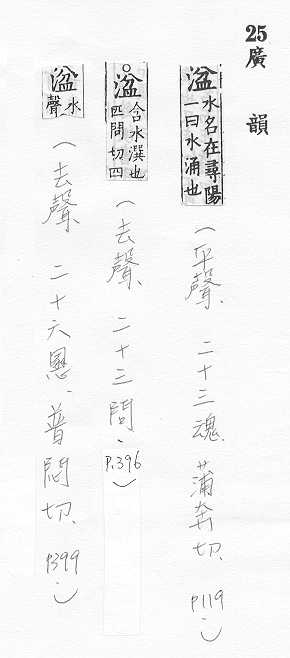 25廣韻
湓水名在尋陽一曰水涌也(平聲、二十三魂、蒲奔切、P119.)
○湓含水潠也匹問切四(去聲、二十三問、P.396)
湓水聲(去聲、二十六慁、普悶切、P399.)